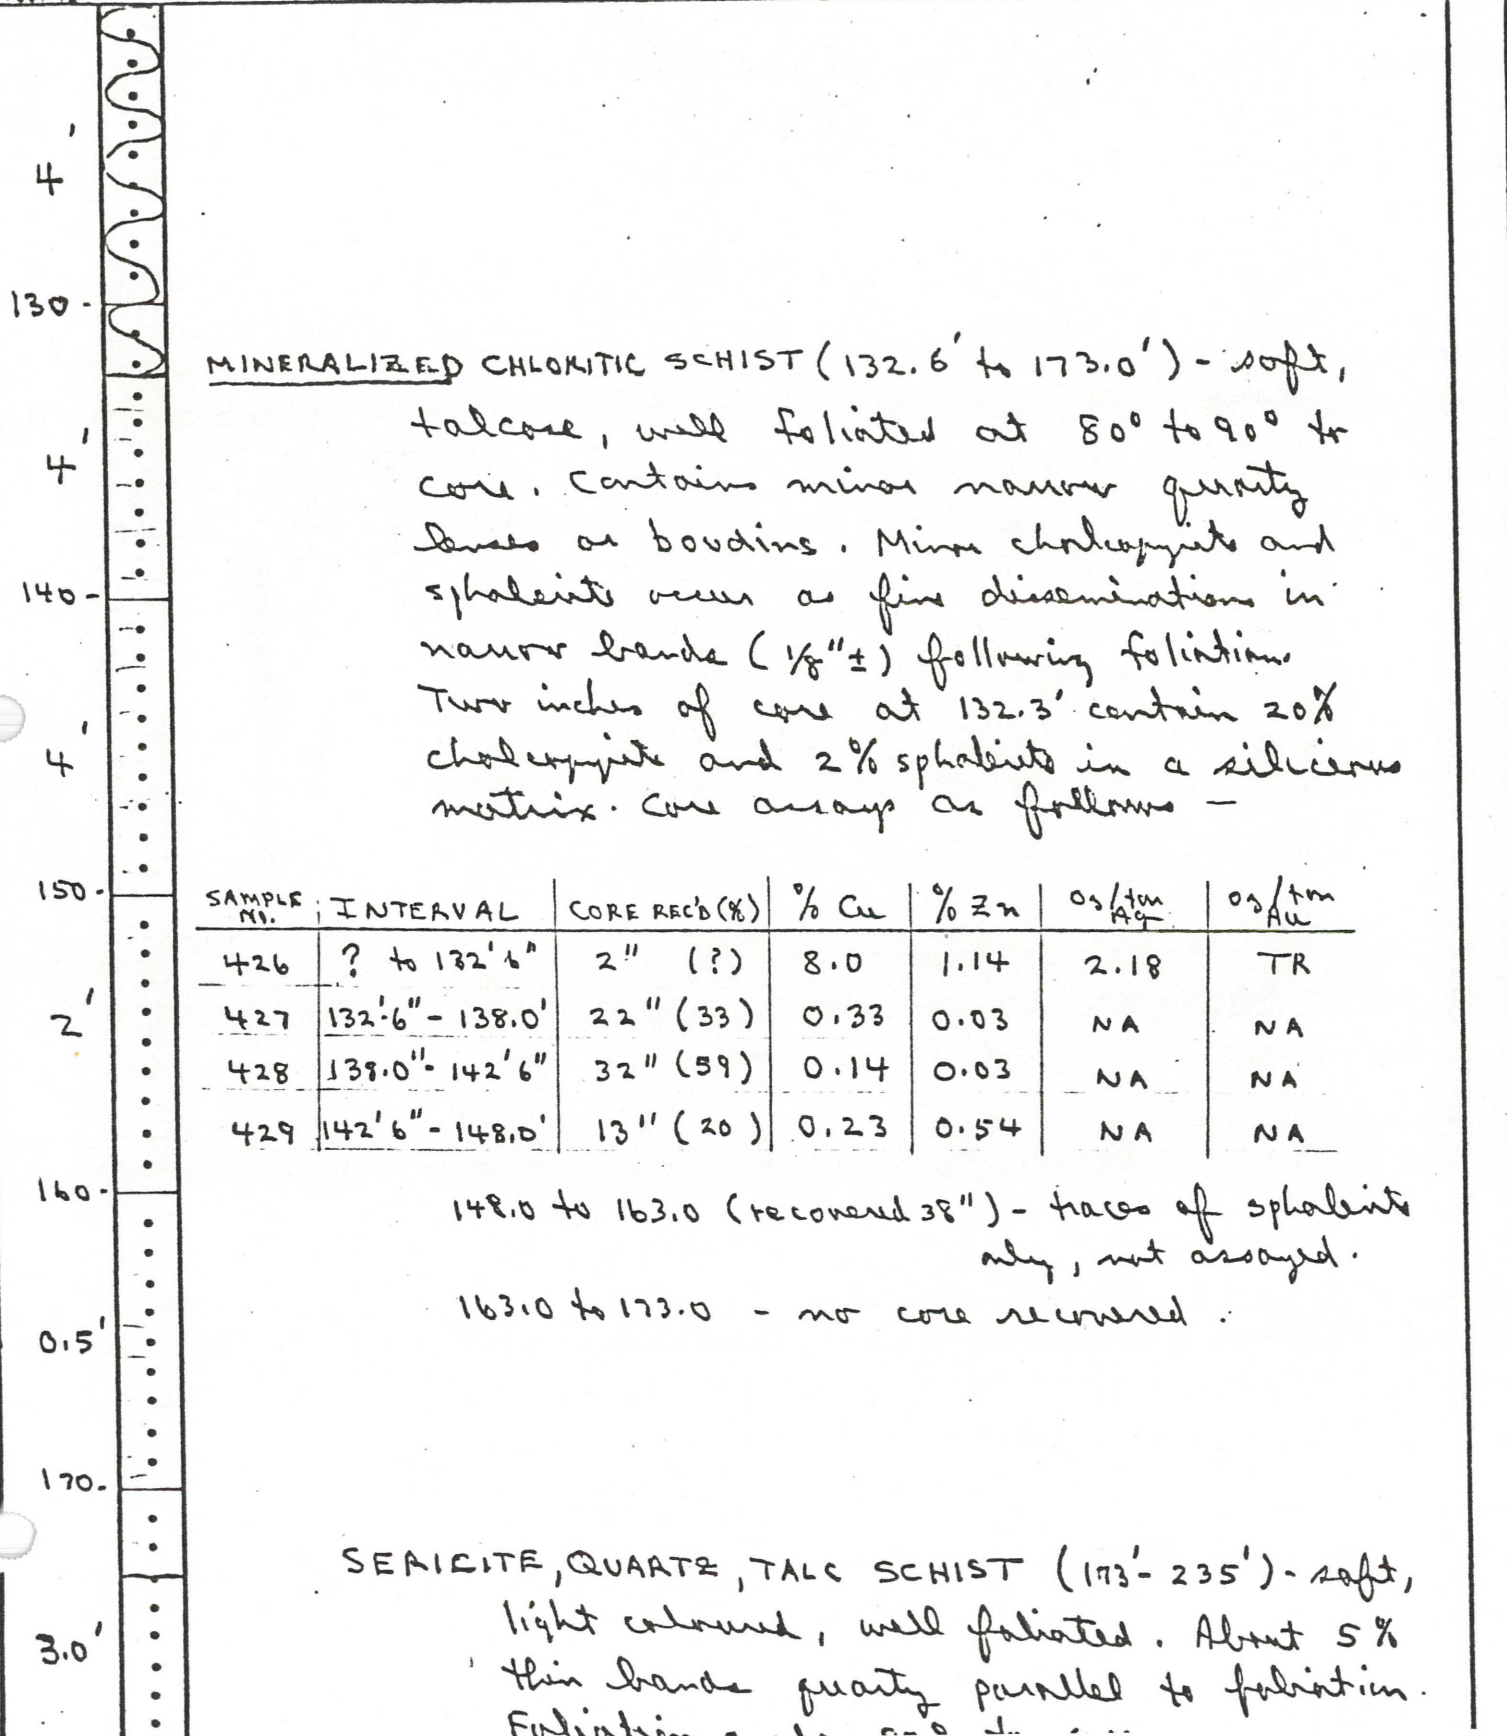 4'
130 -
MINERALIZED CHLORITIC SCHIST (132.6' to 173.0') - soft,
talcose, well foliated at 80° to 90° to
4'
core. Contains minor narrow quartz
lenses or boudins. Minor chalcopyrite and
140 -
sphalerite occur as fine disseminations in
narrow bands (1/8"±) following foliation.
Two inches of core at 132.3' contain 20%
4'
chalcopyrite and 2% sphalerite in a silicious
matrix. Core assays as follows -
150 -
SAMPLE NO. | INTERVAL | CORE REC'D (%) | % Cu | % Zn | Oz/ton Ag | Oz/ton Au
426 | ? to 132'6" | 2" (?) | 8.0 | 1.14 | 2.18 | TR
2'
427 | 132'6" - 138.0' | 22" (33) | 0.33 | 0.03 | NA | NA
428 | 138.0" - 142'6" | 32" (59) | 0.14 | 0.03 | NA | NA
429 | 142'6" - 148.0' | 13" (20) | 0.23 | 0.54 | NA | NA
160 -
148.0 to 163.0 (recovered 38") - traces of sphalerite
only, not assayed.
163.0 to 173.0 - no core recovered.
0.5'
170 -
SERICITE, QUARTZ, TALC SCHIST (173' - 235') - soft,
light coloured, well foliated. About 5%
3.0'
thin bands quartz parallel to foliation.
Foliation